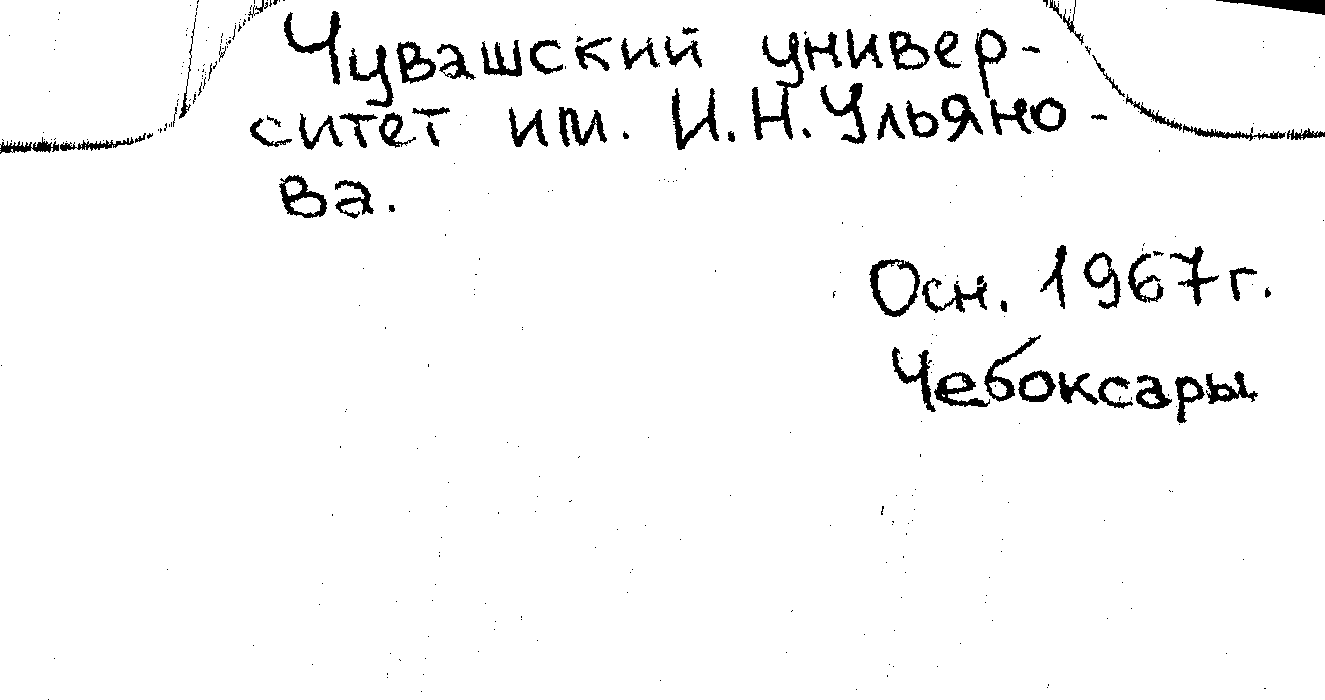 Чувашский универ-
ситет им. И.Н.Ульяно-
ва.
Осн. 1967г.
Чебоксары